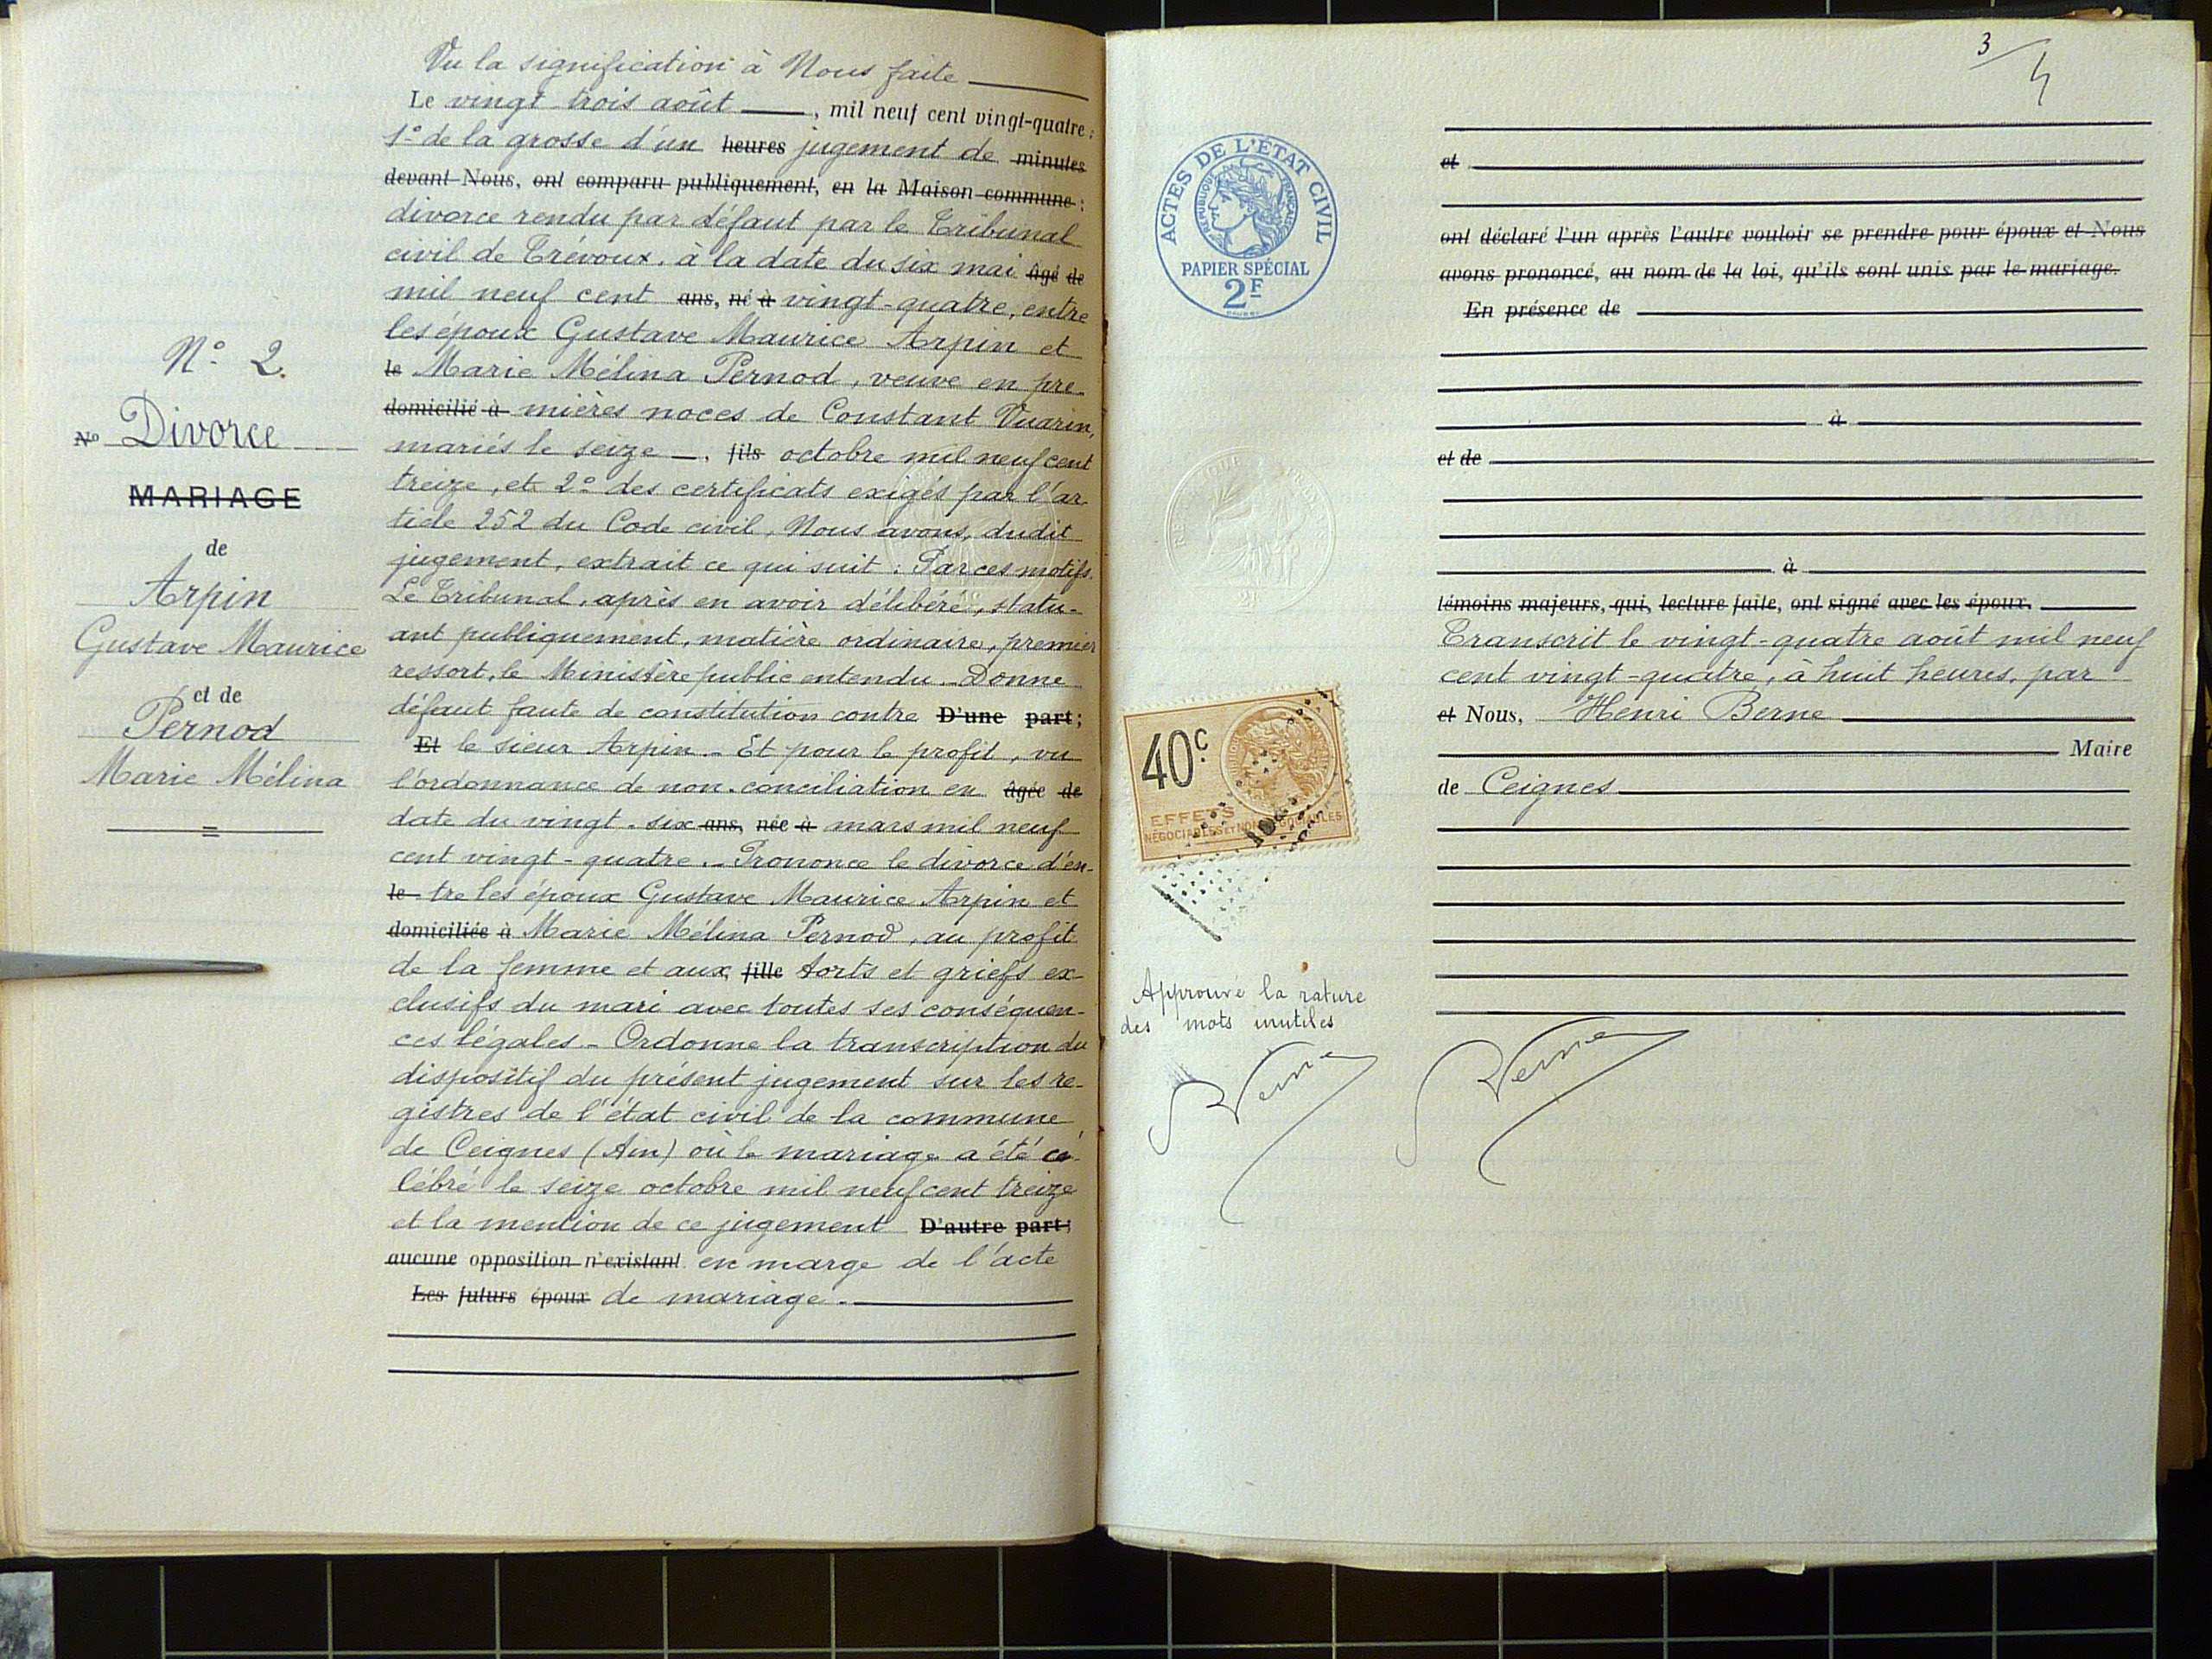 N° 2.
N° Divorce
MARIAGE
de
Arpin
Gustave Maurice
et de
Pernod
Marie Mélina
Vu la signification à Nous faite
Le vingt-trois août, mil neuf cent vingt-quatre :
1° de la grosse d'un heures jugement de minutes
devant Nous, ont comparu publiquement, en la Maison commune :
divorce rendu par défaut par le Tribunal
civil de Trévoux, à la date du six mai âgé de
mil neuf cent ans, né à vingt-quatre, entre
les époux Gustave Maurice Arpin et
le Marie Mélina Pernod, veuve en pre-
domicilié à mières noces de Constant Vuarin,
mariés le seize, fils octobre mil neuf cent
treize, et 2° des certificats exigés par l'ar-
ticle 252 du Code civil, Nous avons, dudit
jugement, extrait ce qui suit : Par ces motifs.
Le Tribunal, après en avoir délibéré, statu-
ant publiquement, matière ordinaire, premier
ressort, le Ministère public entendu. - Donne
défaut faute de constitution contre D'une part ;
Et le sieur Arpin. - Et pour le profit, vu
l'ordonnance de non-conciliation en âgée de
date du vingt-six ans, née à mars mil neuf
cent vingt-quatre. - Prononce le divorce d'en-
le tre les époux Gustave Maurice Arpin et
domiciliée à Marie Mélina Pernod, au profit
de la femme et aux fille torts et griefs ex-
clusifs du mari avec toutes ses conséquen-
ces légales - Ordonne la transcription du
dispositif du présent jugement sur les re-
gistres de l'état civil de la commune
de Ceignes (Ain) où le mariage a été cé-
lébré le seize octobre mil neuf cent treize
et la mention de ce jugement D'autre part ;
aucune opposition n'existant en marge de l'acte
Les futurs époux de mariage.
3
ACTES DE L'ÉTAT CIVIL
RÉPUBLIQUE FRANÇAISE
PAPIER SPÉCIAL
2F
40c
EFFETS
NÉGOCIABLES ET NON NÉGOCIABLES
Approuvé la rature
des mots inutiles
Berne
et
ont déclaré l'un après l'autre vouloir se prendre pour époux et Nous
avons prononcé, au nom de la loi, qu'ils sont unis par le mariage.
En présence de
à
et de
à
témoins majeurs, qui, lecture faite, ont signé avec les époux.
Transcrit le vingt-quatre août mil neuf
cent vingt-quatre, à huit heures, par
et Nous, Henri Berne
Maire
de Ceignes
Berne